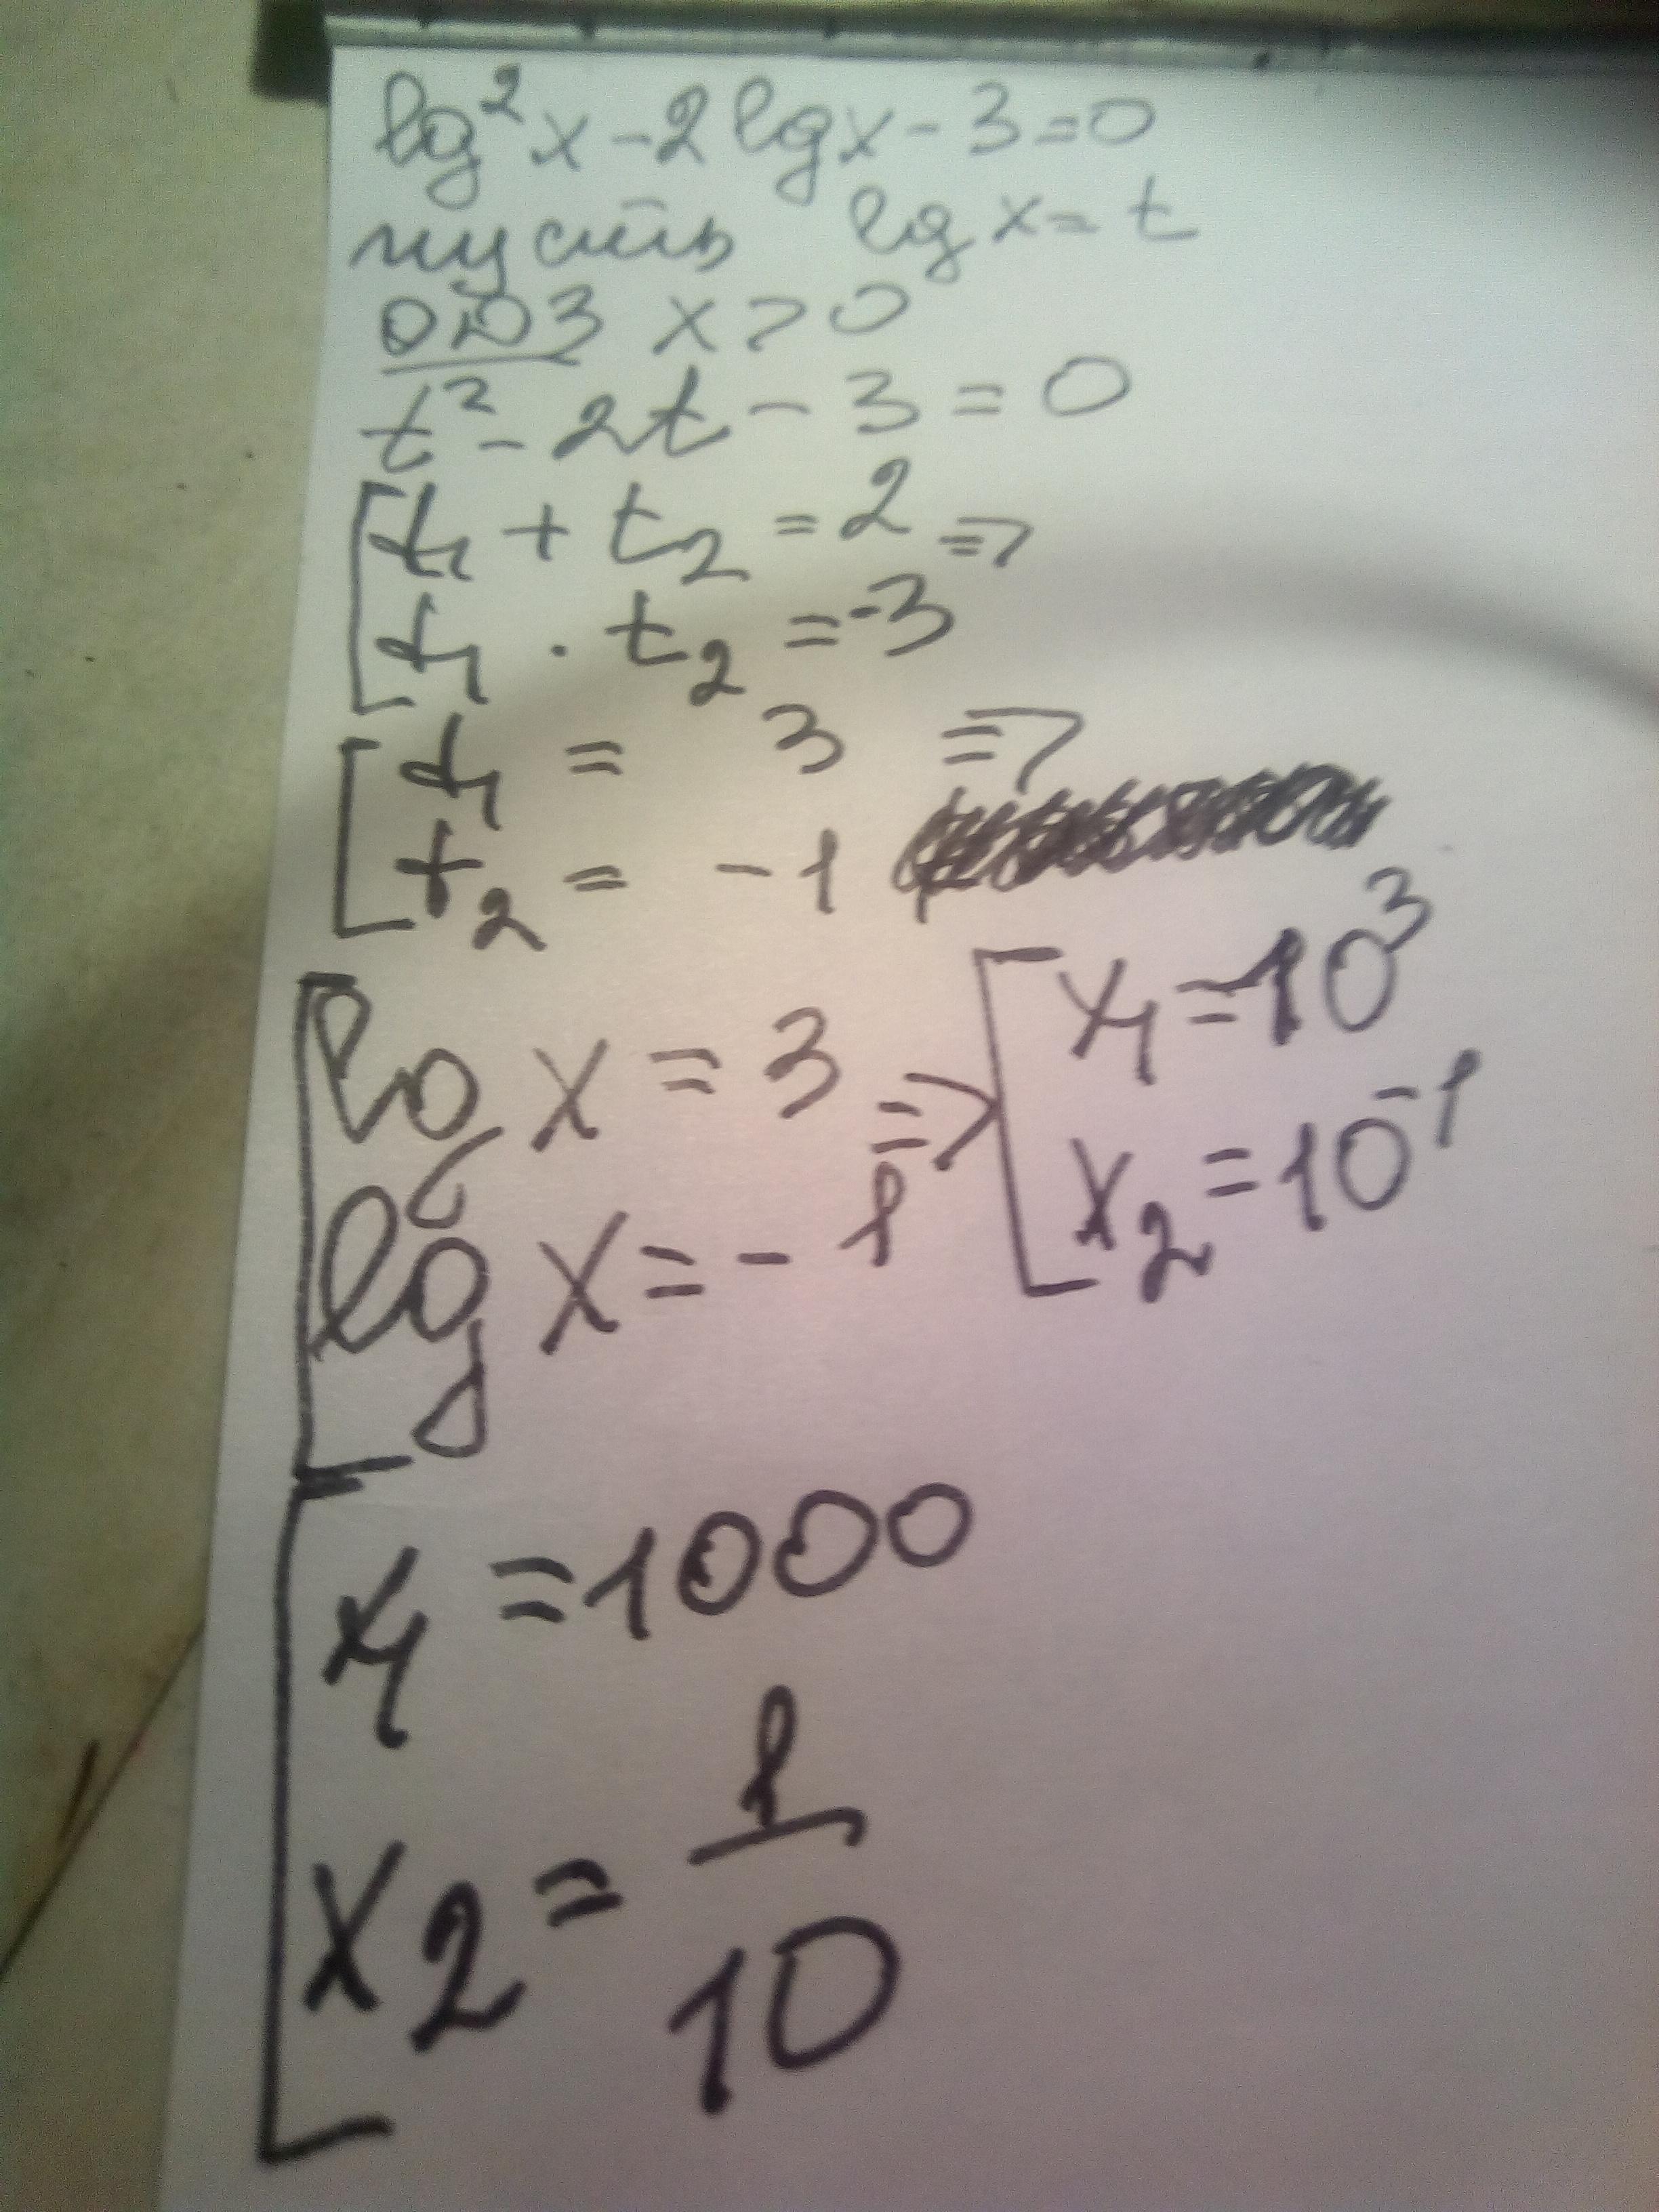 lg²x - 2lgx - 3 = 0
пусть lg x = t
ОДЗ x > 0
t² - 2t - 3 = 0
[ t₁ + t₂ = 2 =>
t₁ · t₂ = -3
[ t₁ = 3 =>
t₂ = -1
[ lg x = 3 => [ x₁ = 10³
lg x = -1 x₂ = 10⁻¹
[ x₁ = 1000
x₂ = 1/10